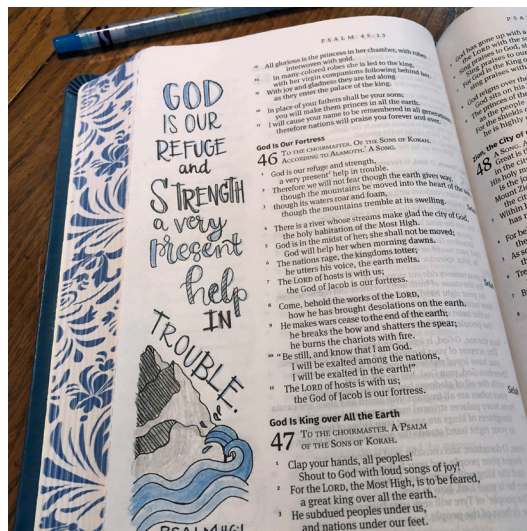 PSALM 45:13
GOD
IS OUR
REFUGE
and
STRENGTH
a very
present
help
IN
TROUBLE.
PSALM 46:1
All glorious is the princess in her chamber, with robes
interwoven with gold.
In many-colored robes she is led to the king,
with her virgin companions following behind her.
With joy and gladness they are led along
as they enter the palace of the king.
In place of your fathers shall be your sons;
you will make them princes in all the earth.
I will cause your name to be remembered in all generations;
therefore nations will praise you forever and ever.
God Is Our Fortress
46 TO THE CHOIRMASTER. OF THE SONS OF KORAH.
ACCORDING TO ALAMOTH. A SONG.
1 God is our refuge and strength,
a very present help in trouble.
2 Therefore we will not fear though the earth gives way,
though the mountains be moved into the heart of the sea,
3 though its waters roar and foam,
though the mountains tremble at its swelling.
4 There is a river whose streams make glad the city of God,
the holy habitation of the Most High.
5 God is in the midst of her; she shall not be moved;
God will help her when morning dawns.
6 The nations rage, the kingdoms totter;
he utters his voice, the earth melts.
7 The LORD of hosts is with us;
the God of Jacob is our fortress.
8 Come, behold the works of the LORD,
how he has brought desolations on the earth.
9 He makes wars cease to the end of the earth;
he breaks the bow and shatters the spear;
he burns the chariots with fire.
10 "Be still, and know that I am God.
I will be exalted among the nations,
I will be exalted in the earth!"
11 The LORD of hosts is with us;
the God of Jacob is our fortress. Selah
God Is King over All the Earth
47 TO THE CHOIRMASTER. A PSALM
OF THE SONS OF KORAH.
1 Clap your hands, all peoples!
Shout to God with loud songs of joy!
2 For the LORD, the Most High, is to be feared,
a great king over all the earth.
3 He subdued peoples under us,
and nations under our feet.
God has gone up with a
the LORD with the
Sing praises to God,
Sing praises to our
For God is the King
sing praises with
God reigns over
God sits on his
The princes of
as the people
For the shields
he is highly
Zion, the City of
48 A SONG. A
Great is